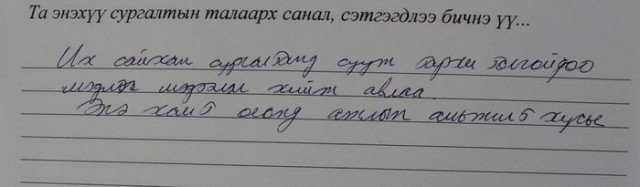 Та энэхүү сургалтын талаарх санал, сэтгэгдлээ бичнэ үү...
Их сайхан сургалтанд сууж тархи толгойгоо
мэдлэг мэдээлэл хийж авлаа.
Энэ хамт олонд ажлын амжилт хүсье